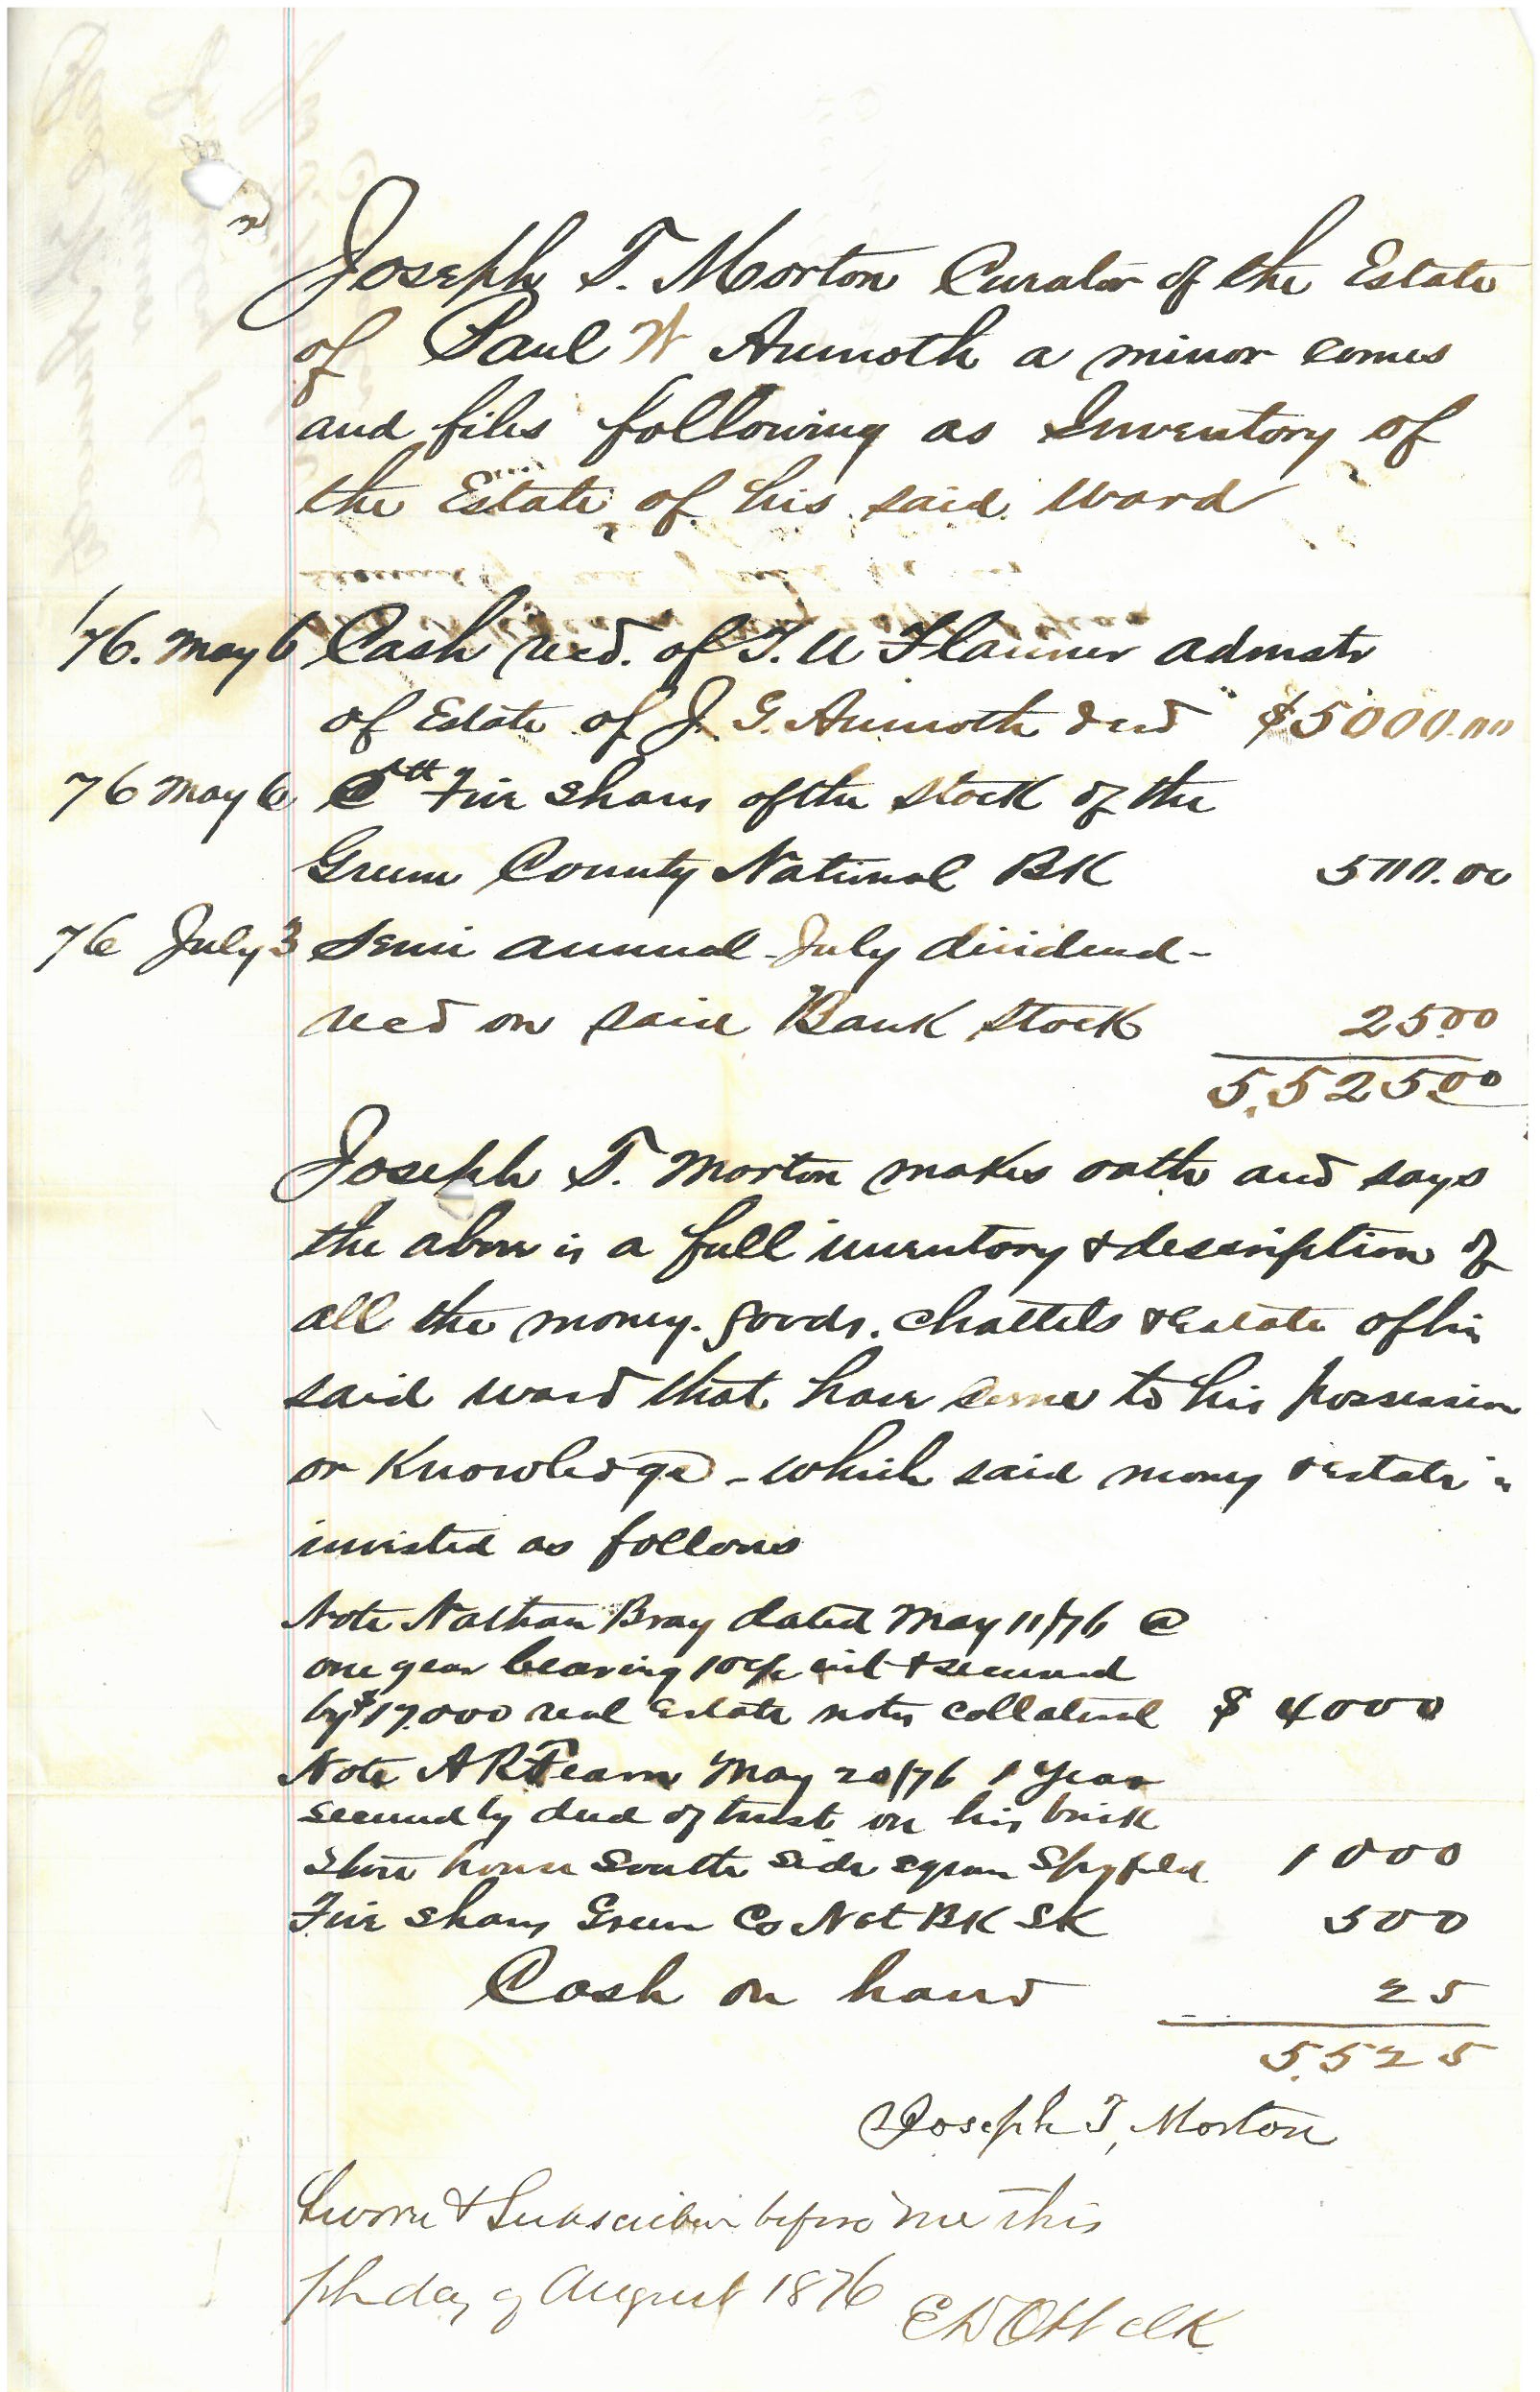 Joseph T. Morton Curator of the Estate
of Paul W Aumoth a minor comes
and files following as Inventory of
the Estate of his said Ward
'76. May 6 Cash recd. of T. U Flanner admstr
of Estate of J. G. Aumoth decd $5000.00
76 May 6 Five Shares of the Stock of the
Greene County National BK 500.00
76 July 3 Semi annual July dividend -
recd on said Bank Stock 25.00
5,525.00
Joseph T. Morton makes oath and says
the above is a full inventory & description of
all the money. goods. chattels & Estate of his
said ward that have come to his possession
or Knowledge - which said money & estate is
invested as follows
Note Nathan Bray dated May 11/76 @
one year bearing 10% int & secured
by $17.000 real Estate notes collateral $ 4000
Note May 20/76 1 Year
secured by deed of trust on his brick
Store house South Side square Spgfield 1000
Five Shares Green Co Nat BK SK 500
Cash on hand 25
5,525
Joseph T, Morton
Sworn & Subscribed before me this
day of August 1876 clk